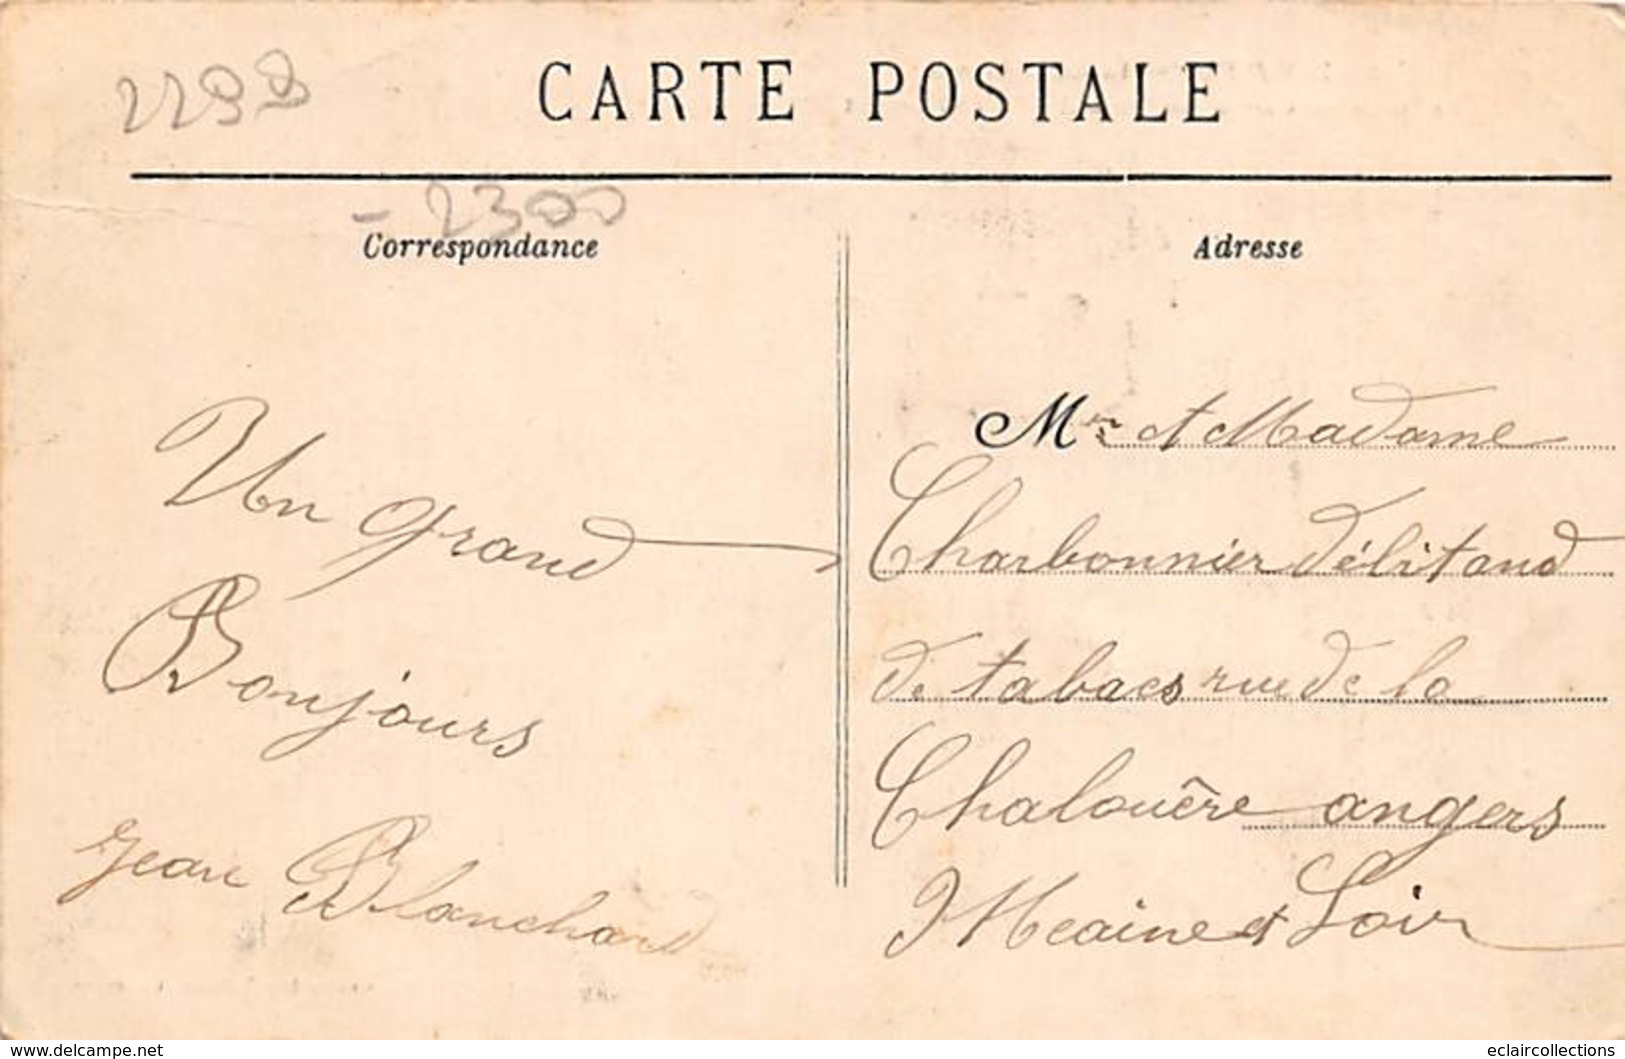 2299
CARTE POSTALE
- 2300
Correspondance
Un grand
Bonjours
Jean Blanchard
Adresse
Mr et Madame
Charbonnier délitand
de tabacs rue de la
Chalouère angers
Meaine et Loir
www.delcampe.net
eclaircollections